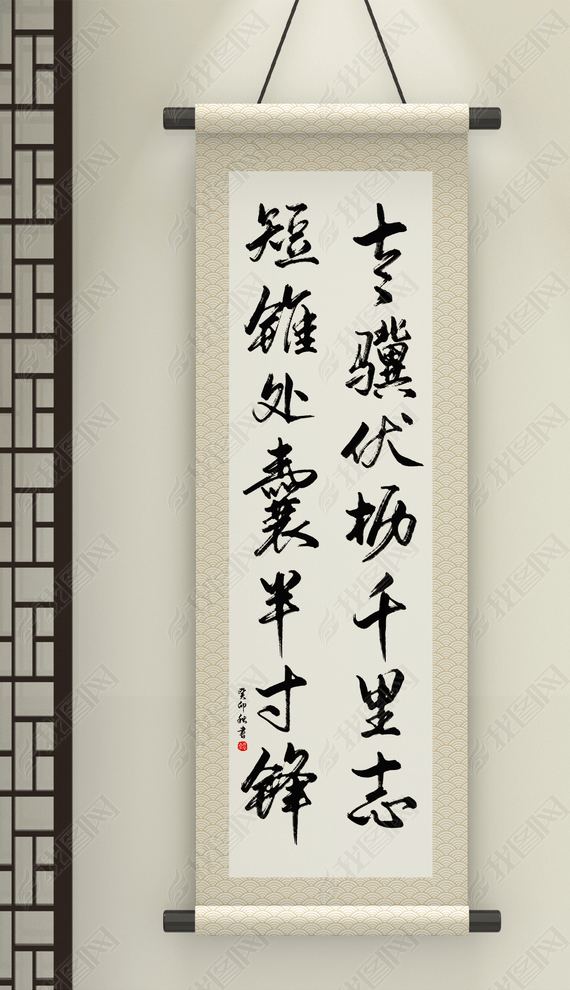 老骥伏枥千里志
短锥处囊半寸锋
癸卯秋书
我图网